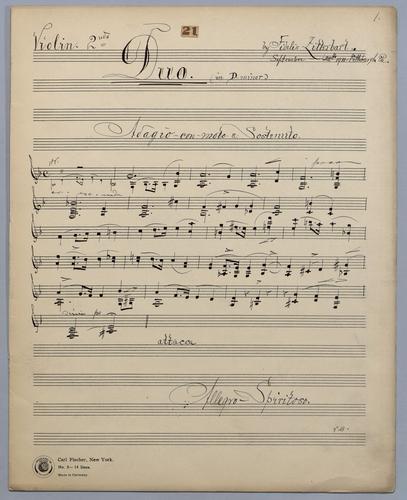 Violin. 2nd
21
1.
Duo.
(in D minor.)
by Fidelis Zitterbart.
September
Adagio-con-moto e Sostenuto.
attacca
Allegro-Spiritoso.
Carl Fischer, New York.
No. 5 - 14 lines.
Made in Germany